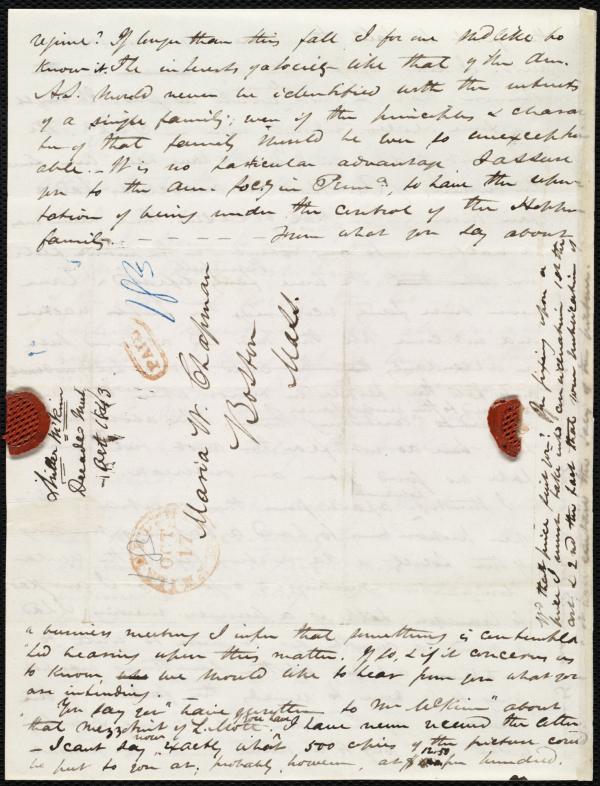 regime? If longer than this fall I for one should like to
know it. The interests of a Society like that of the Am.
A.S. should never be identified with the interests
of a single family; even if the principles & charac
ter of that family should be ever so unexception
able. – It is no particular advantage I assure
you to the Am. Socy in Penna, to have the repu
tation of being under the control of the
family. – – – – – From what you say about
18¾
PAID
Maria W. Chapman
Boston
Mass.
Miller McKim
Decades Mus
Oct 1843
OCT
17
Is that price suit you? In fixing upon a
price I must take into consideration 1st the
cost & 2nd the fact that
a business meeting I infer that something is contempla
ted bearing upon this matter. If so, & if it concerns us
to know, we should like to hear from you what you
are intending.
"You say you" have "written to Mr McKim" about
that mezzotint of L. Mott. I have never received the letter
you have
– I cant say now "exactly what" 500 copies of the picture could
be put to you at; probably, however, at $12.50 per hundred.